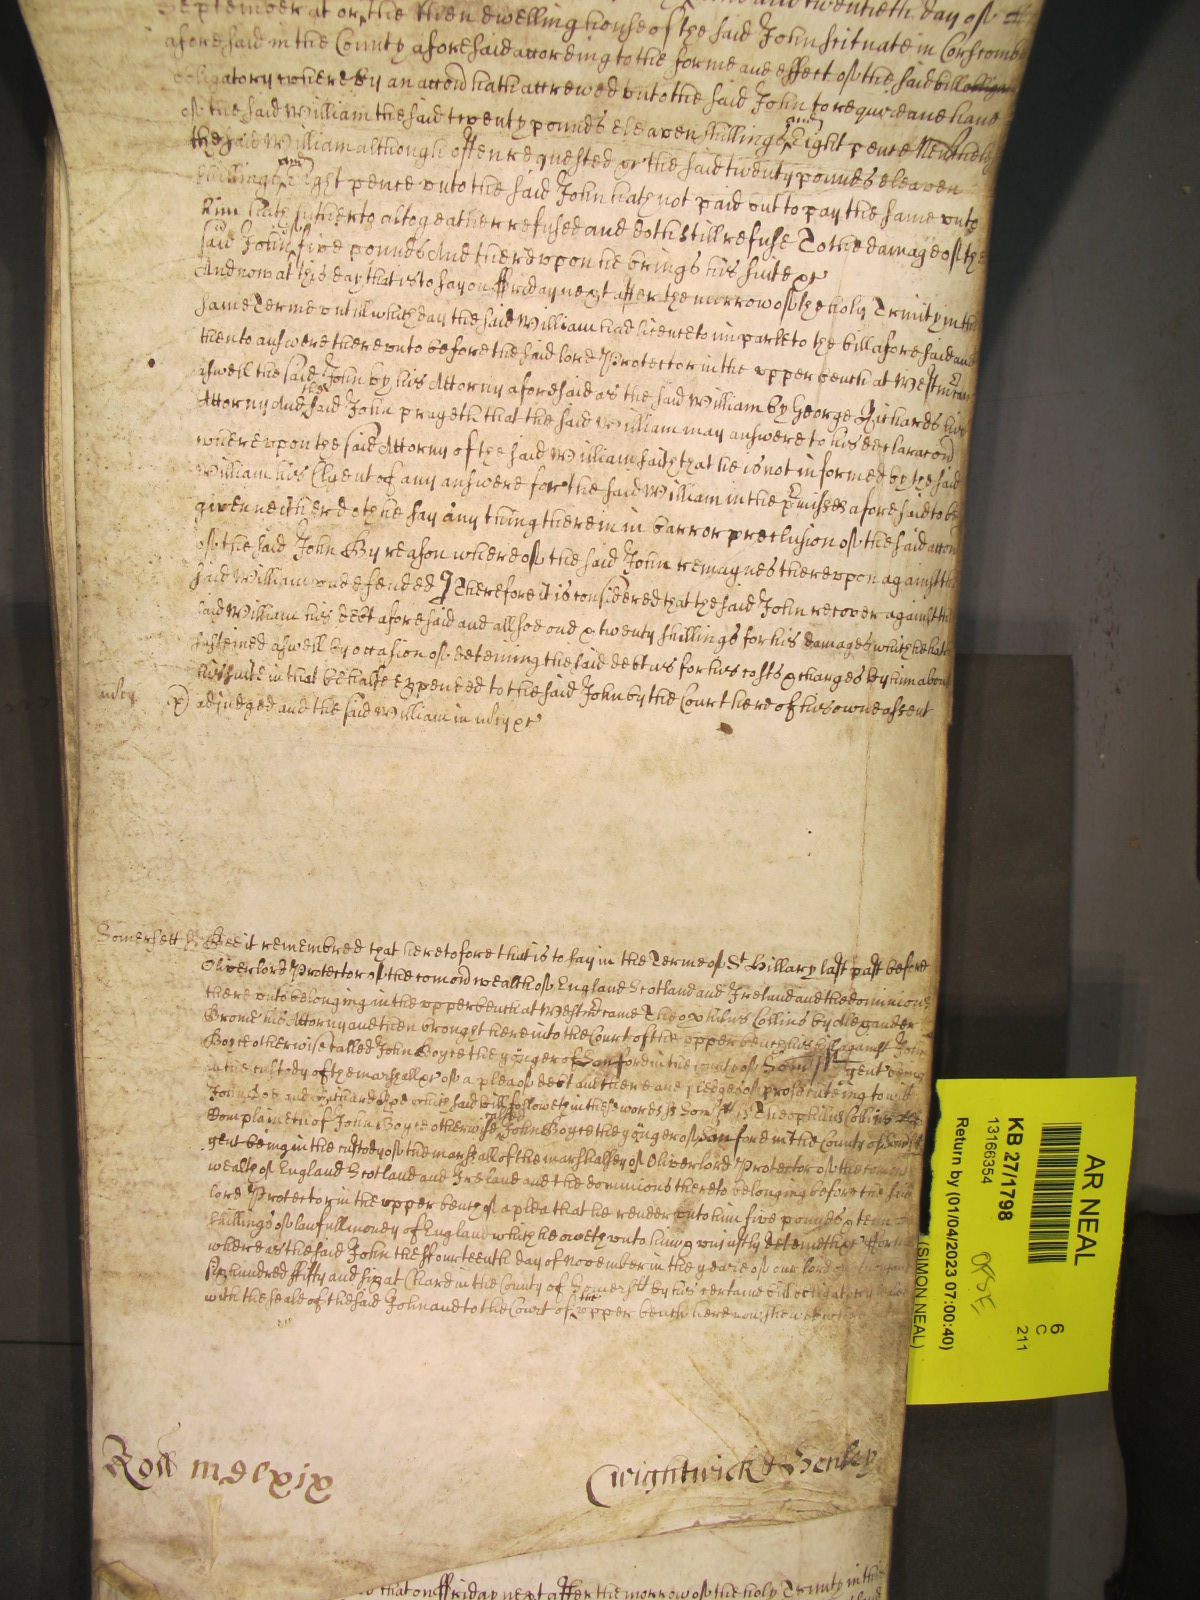 and twentieth day of
September at or the then dwelling house of the said John scituate in Corscombe
aforesaid in the County aforesaid according to the forme and effect of the said bill
obligatory whereby an accon hath accrewed unto the said John to require and have
of the said William the said twenty pounds eleaven shillings and eight pence Neverthelesse
the said William although often requested &c the said twenty pounds eleaven
shillings and eight pence unto the said John hath not paid but to pay the same unto
him hath hitherto altogeather refused and doth still refuse To the damage of the
said John five pounds And thereupon he brings his suite &c
And now at this day that is to say on ffriday next after the morrow of the holy Trinity in this
same Terme untill which day the said William had licence to imparle to the bill aforesaid and
then to answere thereunto before the said lord Protector in the upper bench at Westm came
aswell the said John by his Attorny aforesaid as the said William by George Richards his
Attorny And the said John prayeth that the said William may answere to his declaracon
whereupon the said Attorny of the said William saith that he is not informed by the said
William his Clyent of any answere for the said William in the pmisses aforesaid to be
given neither doth he say any thing therein in barr or preclusion of the said accon
of the said John By reason whereof the said John remaynes thereupon against the
said William undefended Therefore it is considered that the said John recover against the
said William his debt aforesaid and allsoe one & twenty shillings for his damages which he hath
susteined aswell by occasion of deteining the said debt as for his costs & charges by him about
his suite in that behalfe expended to the said John by the Court here of his owne assent
mcy adjudged and the said William in mcy &c
Somersett ss Bee it remembred that heretofore that is to say in the Terme of St Hillary last past before
Oliver lord Protector of the comon wealth of England Scotland and Ireland and the dominions
thereunto belonging in the upper bench at Westm came Theophilus Collins by Alexander
Brome his Attorny and then brought here into the Court of the upper bench his bill against John
Boyce otherwise called John Boyce the yonger of Sanford in the county of Somsett gent being
in the custody of the marshall &c of a plea of debt and there are pledges of prosecuteing to witt
John Doe and Richard Roe which said bill followeth in these words ss Somsett ss Theophilus Collins
Complaineth of John Boyce otherwise called John Boyce the yonger of Sanford in the County of Somsett
gent being in the custody of the marshall of the marshalsey of Oliver lord Protector of the comon
wealth of England Scotland and Ireland and the dominions thereto belonging before the said
lord Protector in the upper bench of a plea that he render unto him five pounds & tenn
shillings of lawfull money of England which he oweth unto him & uniustly deteineth ffor
whereas the said John the ffourteenth day of November in the yeare of our lord
six hundred ffifty and six at Chard in the County of Somersett by his certaine bill obligatory sealed
with the seale of the said John and to the Court of the upper bench here now shewed
Roll mdcxix
Cwightwick & Henley
that on ffriday next after the morrow of the holy Trinity in this
AR NEAL
KB 27/1798
13166354
Return by (01/04/2023 07:00:40)
(SIMON NEAL)
6
C
211